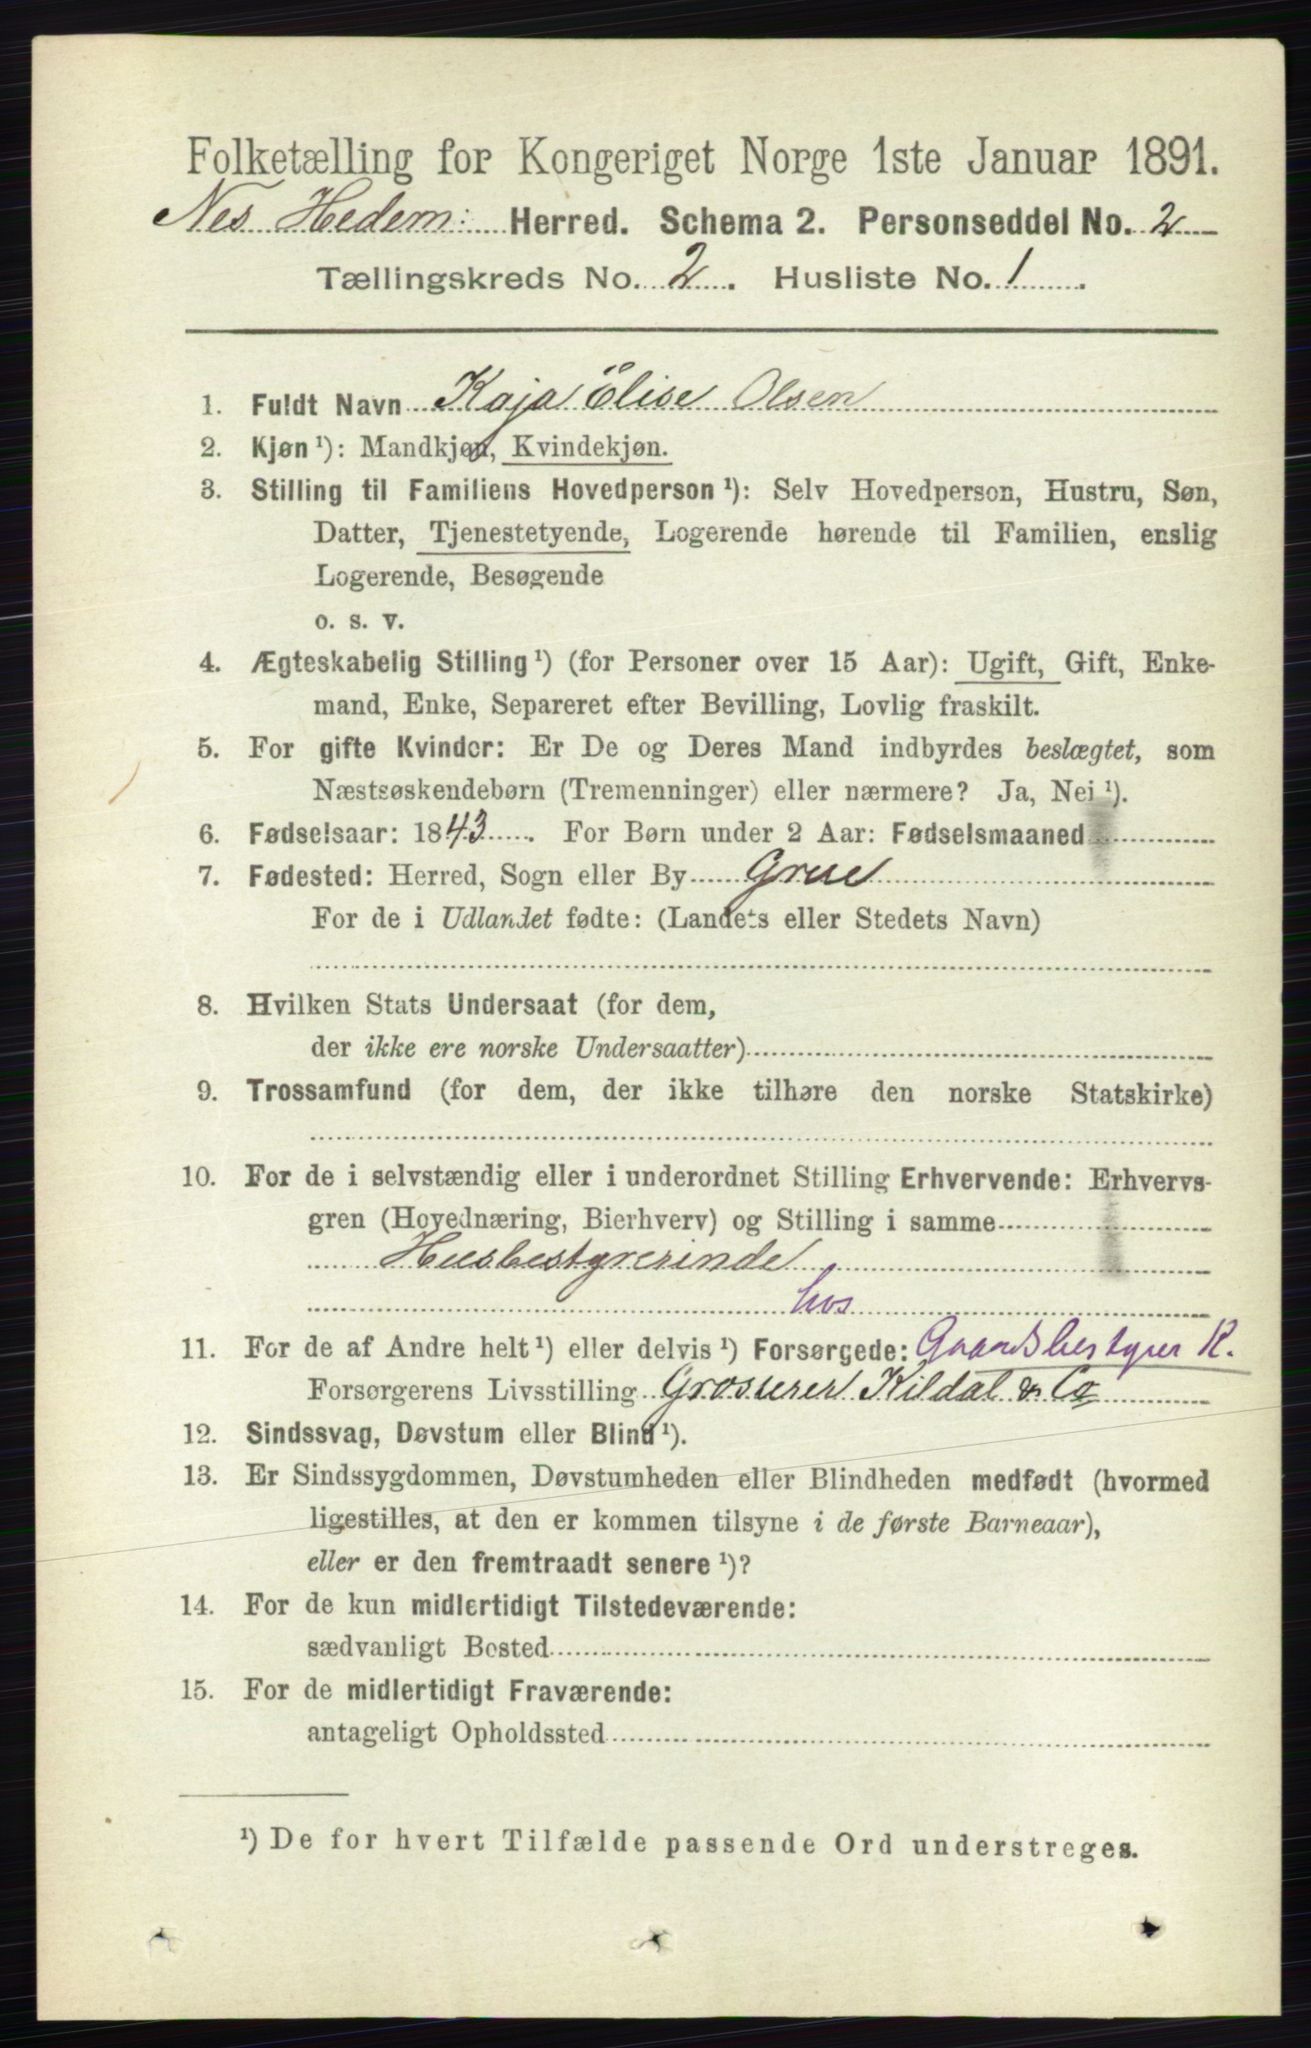 Folketælling for Kongeriget Norge 1ste Januar 1891.
Nes Hedem: Herred. Schema 2. Personseddel No. 2
Tællingskreds No. 2. Husliste No. 1.
1. Fuldt Navn Kaja Elise Olsen
2. Kjøn ¹): Mandkjøn, Kvindekjøn.
3. Stilling til Familiens Hovedperson ¹): Selv Hovedperson, Hustru, Søn,
Datter, Tjenestetyende, Logerende hørende til Familien, enslig
Logerende, Besøgende
o. s. v.
4. Ægteskabelig Stilling ¹) (for Personer over 15 Aar): Ugift, Gift, Enke-
mand, Enke, Separeret efter Bevilling, Lovlig fraskilt.
5. For gifte Kvinder: Er De og Deres Mand indbyrdes beslægtet, som
Næstsøskendebørn (Tremenninger) eller nærmere? Ja, Nei ¹).
6. Fødselsaar: 1843. For Børn under 2 Aar: Fødselsmaaned
7. Fødested: Herred, Sogn eller By Grue
For de i Udlandet fødte: (Landets eller Stedets Navn)
8. Hvilken Stats Undersaat (for dem,
der ikke ere norske Undersaatter)
9. Trossamfund (for dem, der ikke tilhøre den norske Statskirke)
10. For de i selvstændig eller i underordnet Stilling Erhvervende: Erhvervs-
gren (Hovednæring, Bierhverv) og Stilling i samme
Husbestyrerinde
hos
11. For de af Andre helt ¹) eller delvis ¹) Forsørgede: Gaardsbestyrer K.
Forsørgerens Livsstilling Grosserer Kildal & Co
12. Sindssvag, Døvstum eller Blind ¹).
13. Er Sindssygdommen, Døvstumheden eller Blindheden medfødt (hvormed
ligestilles, at den er kommen tilsyne i de første Barneaar),
eller er den fremtraadt senere ¹)?
14. For de kun midlertidigt Tilstedeværende:
sædvanligt Bosted
15. For de midlertidigt Fraværende:
antageligt Opholdssted
¹) De for hvert Tilfælde passende Ord understreges.